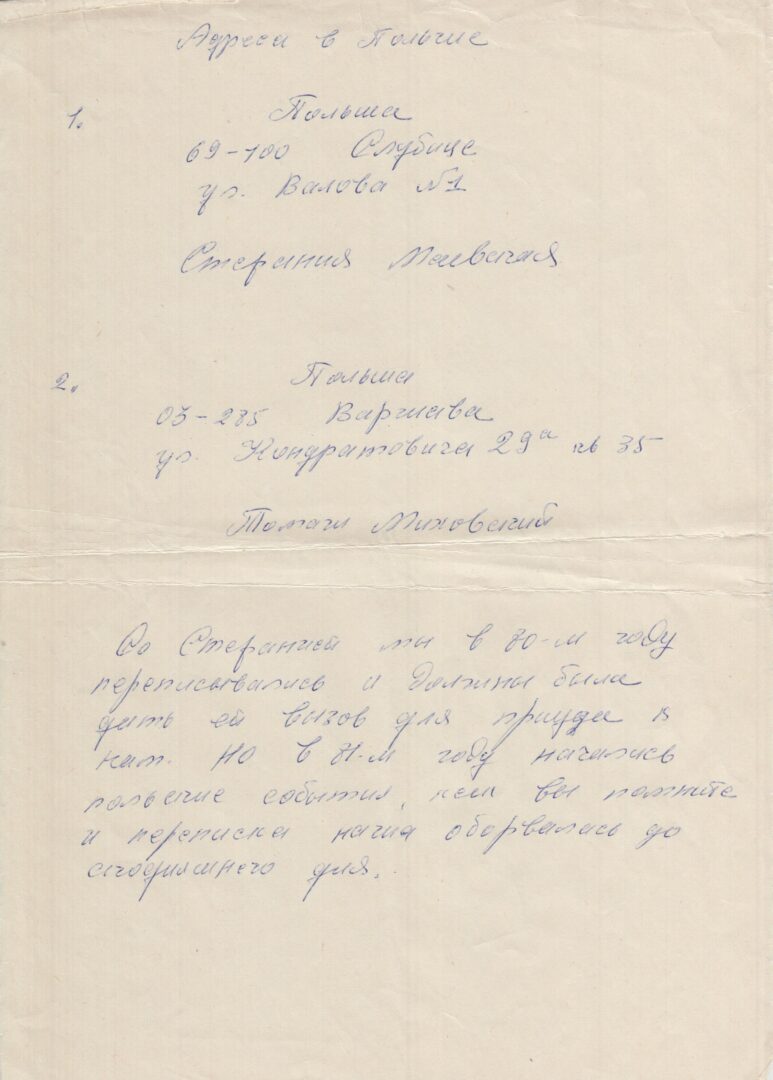 Адреса в Польше
1.
Польша
69-100 Слубице
ул. Валова №1
Стефания
2.
Польша
03-285 Варшава
ул. Кондратовича 29а кв 35
Томаш Миховский
Со Стефанией мы в 80-м году
переписывались и должны были
дать ей вызов для приезда к
нам. Но в 81-м году начались
польские события, как вы помните
и переписка наша оборвалась до
сегодняшнего дня.